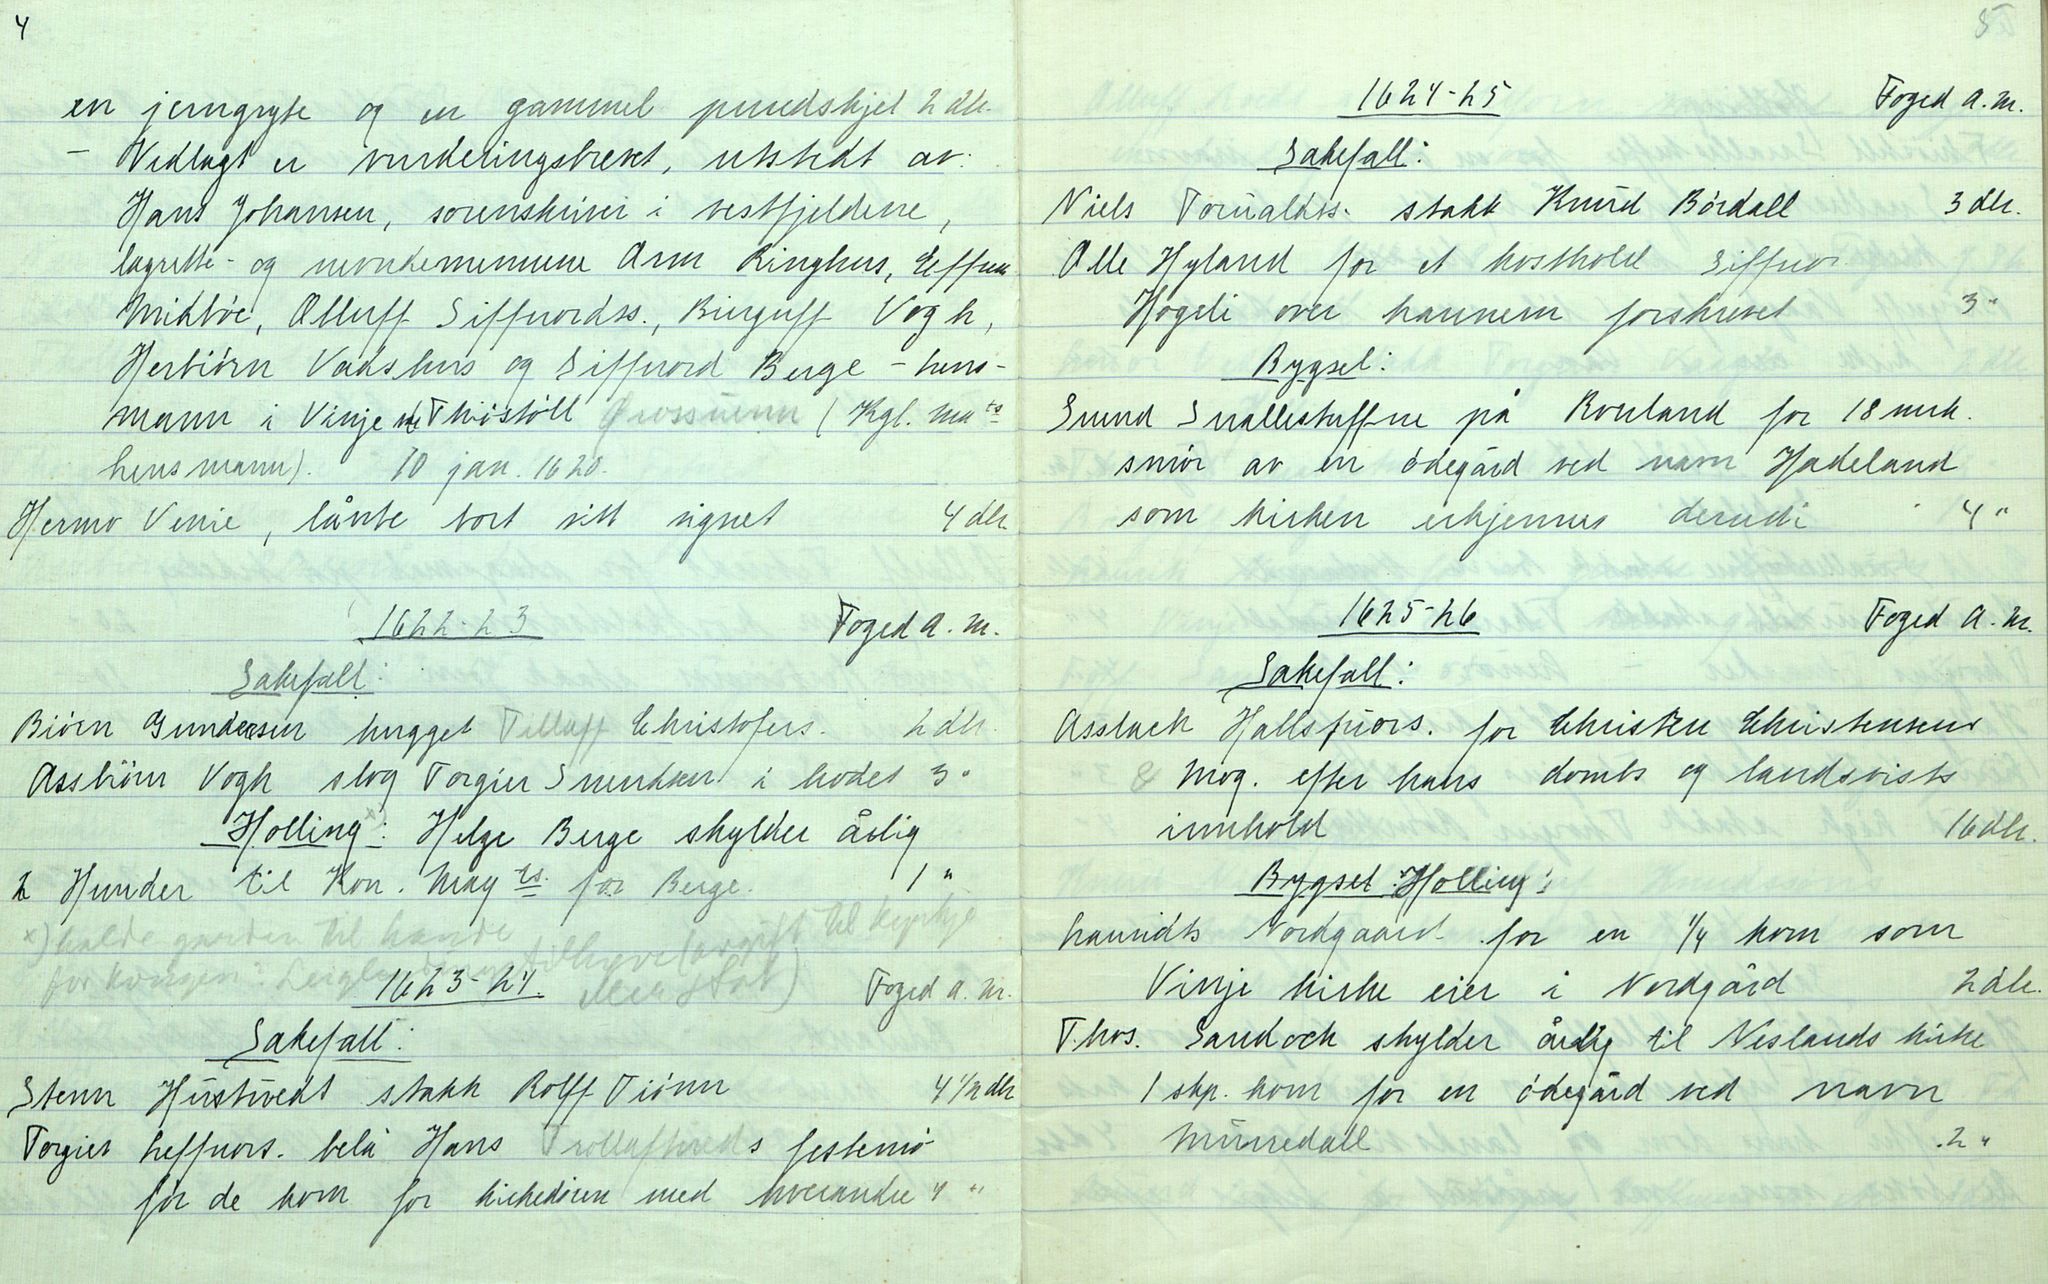 4
en jerngryte og en gammel pundskjel 2 dlr.
- Vedlagt er vurderingsbrevet, utstedt av:
Hans Johansen, sorenskriver i vestfjeldene,
lagrette- og nevndemennene Arne Ringhus, Leffuer
Midtbøe, Olluff Siffuordss., Biugulff Vogh,
Herbiörn Vadshus og Siffuord Berge - lens-
mann i Vinje Thiöstöll (Kgl. ma ts
lensmann). 10 jan. 1620.
Hermo Venie, lånte bort sitt signet 4 dlr
1622-23 Foged A. M.
Sakefall:
Biörn Gundersen hugget Tilluff Christofers. 2 dlr.
Assbiörn Vogh slog Torgier Suendsen i hodet 3 "
Holling x): Helge Berge skylder årlig
2 Hunder til Kon. May ts. for Berge. 1 "
x) halde garden til hande
for kongen: (avgift til kyrkje
1623-24. Foged A. M.
Sakefall:
Stenn Hustvedt stakk Rolff Tiönn 4 1/2 dlr
Torgier Leffuors. belå Hans festemö
før de kom for kirkedören med hverandre 4 "
5
1624-25 Foged A. M.
Sakefall:
Niels Torualdss. stakk Knud Bördall 3 dlr.
Olle Hyland for et kosthold Siffuor
Hogeli over hannem forskrevet 3 "
Bygsel:
Suend Suallestuffne på Rouland for 18 mrk.
smör av en ödegård ved navn Hadeland
som kirken erkjennes derudi 4 "
1625-26 Foged A. M.
Sakefall:
Asslack Hallsfuors. for Christen Christensens
mog. efter hans dombs og landsvists
innhold 16 dlr.
Bygsel: Holling:
Lauridts Nordgaard for en 1/4 korn som
Vinje kirke eier i Nordgård 2 dlr.
Thos. Sandock skylder årlig til Neslands kirke
1 skp. korn for en ödegård ved navn
Münredall 2 "